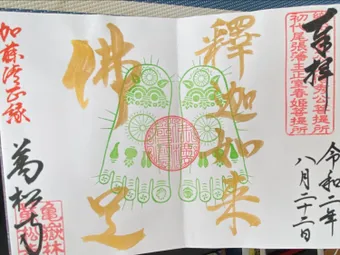 奉拝
秀公菩提所
初代尾張藩主正室春姫菩提所
令和二年
八月二十二日
釋迦如来
佛足
加藤清正縁
萬松寺
亀嶽林